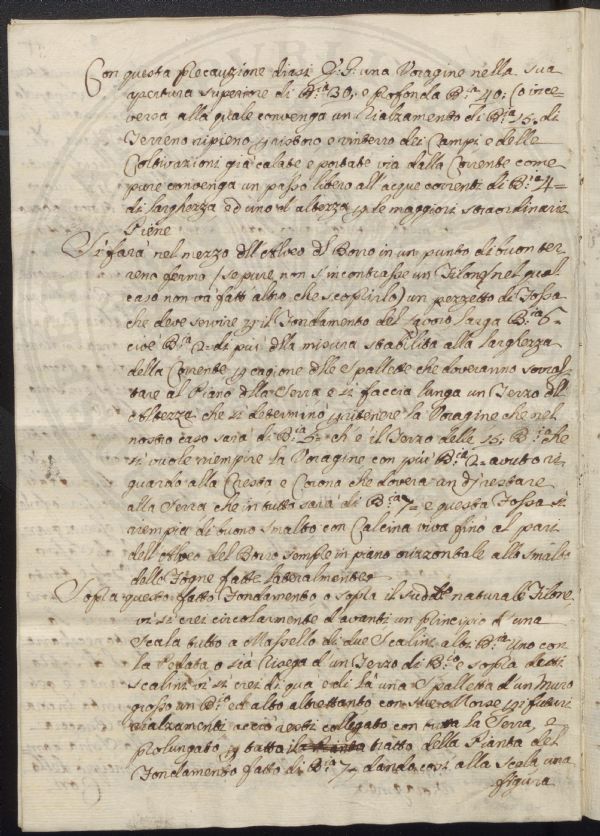 Con questa Precauzione diasi P: G: una Voragine nella sua
apertura superiore di B:ia 30, e profonda B:ia 40: Co ince-
versa alla quale convenga un Rialzamento di B:ia 15: di
Terreno ripieno p ristoro e rinterro dei Campi e delle
Coltivazioni già calate e portate via dalla Corrente come
pure convenga un passo libero all'acque correnti di B:ia 4=
di larghezza ed uno d'altezza p le maggiori straordinarie
Piene
Si farà nel mezzo dell'Alveo del Borro in un punto di buon ter-
reno fermo (se pure non s'incontrasse un Filone nel qual
caso non va fatt'altro che scoprirlo) un pezzetto di Fossa
che deve servire p il Fondamento del Lavoro larga B:ia 6=
cioè B:ia 2= di più della misura stabilita alla larghezza
della Corrente p cagione delle Spallette che doveranno sovras
tare al Piano della Serra e si faccia lunga un Terzo dell
Altezza che si determinò p ritenere la Voragine che nel
nostro caso sarà di B:ia 5= ch'è il Terzo delle 15: B:ia che
si vuole riempire la Voragine con più B:ia 2= avuto ri-
guardo alla Cresta e Corona che doverà andˀ restare
alla Serra che in tutto sarà di B:ia 7= e questa Fossa si
riempia di buono smalto con Calcina viva fino al pari
dell'Alveo del Borro sempre in piano orizzontale allo smalto
dalle Fogne fatte lateralmente
Sopra questo fatto Fondamento o sopra il sudd:to naturale Filone
vi si erei circolarmente d'avanti un principio d'una
Scala tutto a Massello di due Scalini alti B:ia Uno con
la Pedata o sia Risega d'un Terzo di B:ia e sopra detti
scalini vi si erei di qua e di là una Spalletta d'un Muro
grosso un B:io ed alto altrettanto con sue Morse p i futuri
rialzamenti acciò resti collegato con tutta la Serra, e
prolungato p tutto il tratto della Pianta del
Fondamento fatto di B:ia 7= dando così alla Scala una
figura